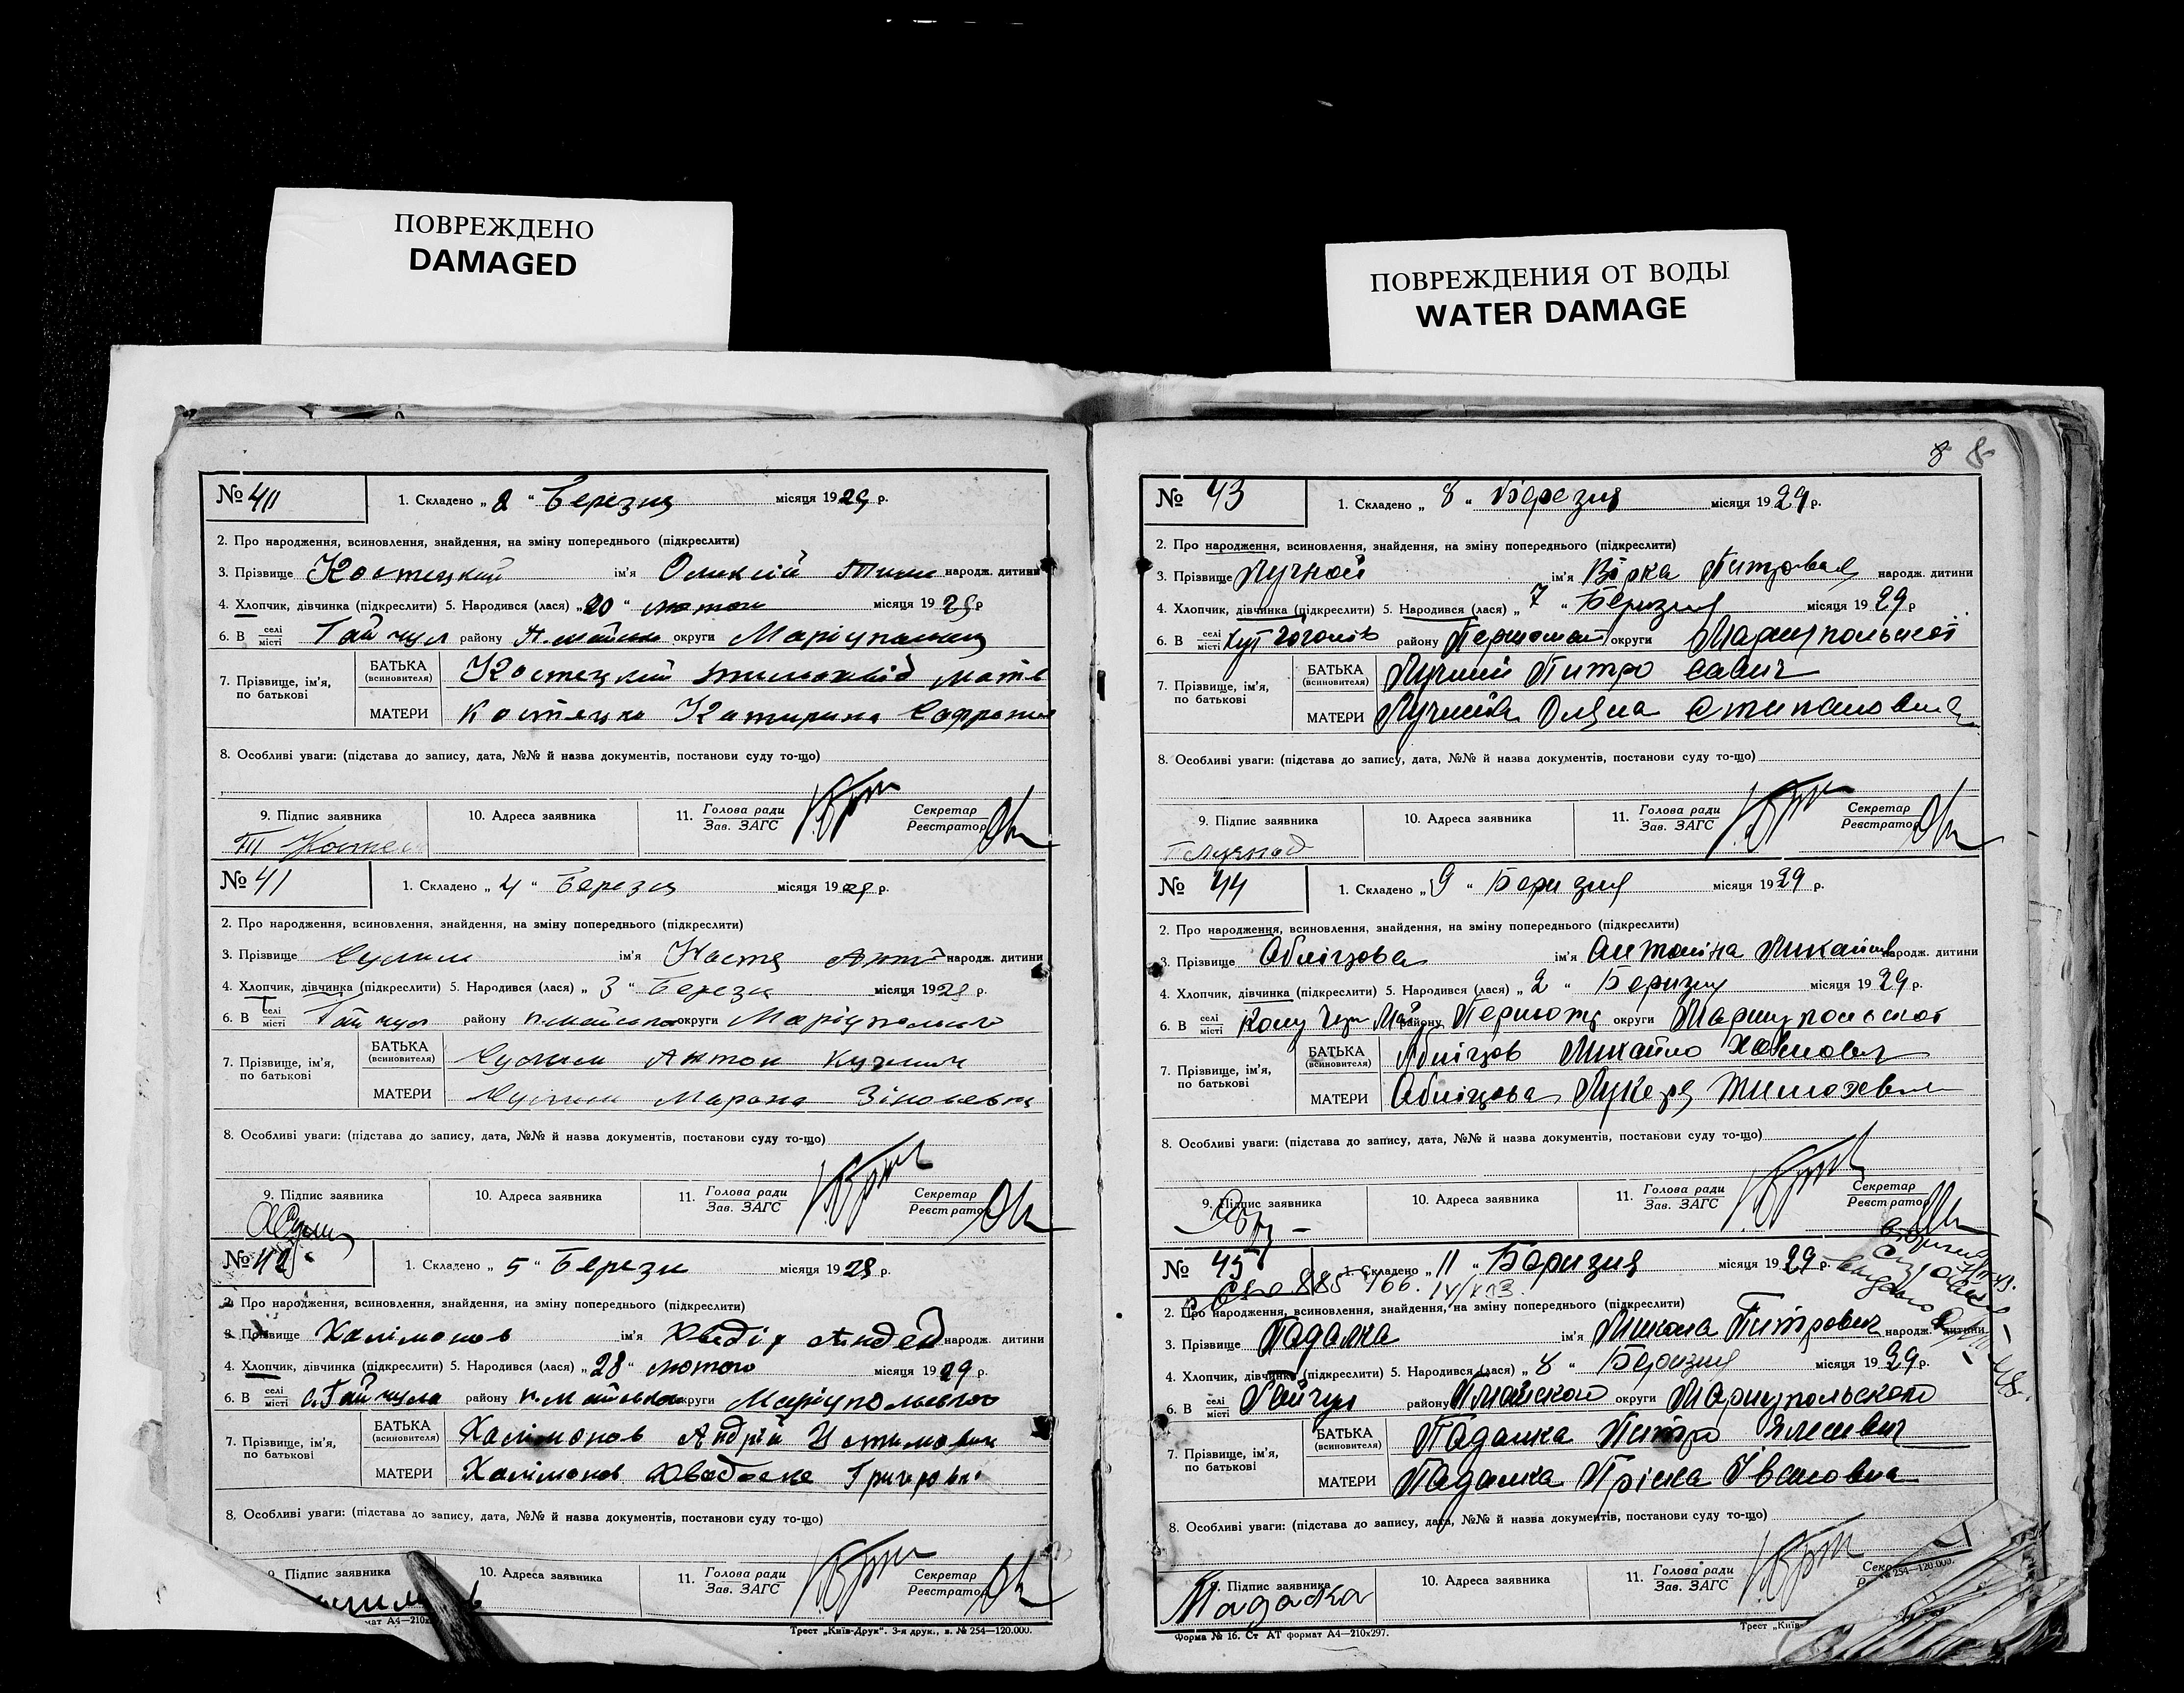 ПОВРЕЖДЕНО
DAMAGED
ПОВРЕЖДЕНИЯ ОТ ВОДЫ
WATER DAMAGE
№ 40
1. Складено „ 2 “ Березня місяця 1929 р.
2. Про народження, всиновлення, знайдення, на зміну попереднього (підкреслити)
3. Прізвище Костецкий ім'я Олексій Тими народж. дитини
4. Хлопчик, дівчинка (підкреслити) 5. Народився (лася) „ 20 “ лютого місяця 1929 р
6. В селі місті Гайчул району П.майськ округи Маріупольськ
7. Прізвище, ім'я, по батькові
БАТЬКА (всиновителя) Костецкий
МАТЕРИ Костецка Катирина Софрон
8. Особливі уваги: (підстава до запису, дата, №№ й назва документів, постанови суду то-що)
9. Підпис заявника 10. Адреса заявника 11. Голова ради Зав. ЗАГС Секретар Реєстратор
№ 41
1. Складено „ 4 “ Березня місяця 1929 р.
2. Про народження, всиновлення, знайдення, на зміну попереднього (підкреслити)
3. Прізвище ім'я Настя Анто народж. дитини
4. Хлопчик, дівчинка (підкреслити) 5. Народився (лася) „ 3 “ Березн місяця 1929 р.
6. В селі місті Гайчул району П.майсько округи Маріупольсько
7. Прізвище, ім'я, по батькові
БАТЬКА (всиновителя) Антон
МАТЕРИ Зіновьевна
8. Особливі уваги: (підстава до запису, дата, №№ й назва документів, постанови суду то-що)
9. Підпис заявника 10. Адреса заявника 11. Голова ради Зав. ЗАГС Секретар Реєстратор
№ 42
1. Складено „ 5 “ Березн місяця 1929 р.
2. Про народження, всиновлення, знайдення, на зміну попереднього (підкреслити)
3. Прізвище Халімонов ім'я Андей народж. дитини
4. Хлопчик, дівчинка (підкреслити) 5. Народився (лася) „ 28 “ лютого місяця 1929 р.
6. В селі місті с. Гайчула району П.майсько округи Маріупольсько
7. Прізвище, ім'я, по батькові
БАТЬКА (всиновителя) Халімонов Андрій Устимович
МАТЕРИ Халімонов
8. Особливі уваги: (підстава до запису, дата, №№ й назва документів, постанови суду то-що)
9. Підпис заявника 10. Адреса заявника 11. Голова ради Зав. ЗАГС Секретар Реєстратор
мат А4—210х
Трест „Київ-Друк“. 3-я друк., в. № 254—120.000.
8 8
№ 43
1. Складено „ 8 “ Березня місяця 1929 р.
2. Про народження, всиновлення, знайдення, на зміну попереднього (підкреслити)
3. Прізвище Лучной ім'я Вірка Питровая народж. дитини
4. Хлопчик, дівчинка (підкреслити) 5. Народився (лася) „ 7 “ Березня місяця 1929 р
6. В селі місті хут Гоголів району Першомай округи Маріупольської
7. Прізвище, ім'я, по батькові
БАТЬКА (всиновителя) Лучний Питро Савич
МАТЕРИ Оляна Стипановна
8. Особливі уваги: (підстава до запису, дата, №№ й назва документів, постанови суду то-що)
9. Підпис заявника 10. Адреса заявника 11. Голова ради Зав. ЗАГС Секретар Реєстратор
Лучной
№ 44
1. Складено „ 9 “ Беризня місяця 1929 р.
2. Про народження, всиновлення, знайдення, на зміну попереднього (підкреслити)
3. Прізвище Обліцова ім'я Антоніна Михайлів народж. дитини
4. Хлопчик, дівчинка (підкреслити) 5. Народився (лася) „ 2 “ Беризня місяця 1929 р.
6. В селі місті району округи Маріупольської
7. Прізвище, ім'я, по батькові
БАТЬКА (всиновителя) Обліцов Михайло
МАТЕРИ Обліцова Лукеря Тимохевна
8. Особливі уваги: (підстава до запису, дата, №№ й назва документів, постанови суду то-що)
9. Підпис заявника 10. Адреса заявника 11. Голова ради Зав. ЗАГС Секретар Реєстратор
№ 45
1. Складено „ 11 “ Беризня місяця 1929 р.
2. Про народження, всиновлення, знайдення, на зміну попереднього (підкреслити)
3. Прізвище Падалка ім'я Микола Питрович народж. дитини
4. Хлопчик, дівчинка (підкреслити) 5. Народився (лася) „ 8 “ Беризня місяця 1929 р.
6. В селі місті Гайчул району П.майского округи Маріупольского
7. Прізвище, ім'я, по батькові
БАТЬКА (всиновителя) Падалка Питро
МАТЕРИ Падалка Пріська Івановна
8. Особливі уваги: (підстава до запису, дата, №№ й назва документів, постанови суду то-що)
9. Підпис заявника 10. Адреса заявника 11. Голова ради Зав. ЗАГС
Падалка
Форма № 16. Ст АТ формат А4—210х297.
Трест „Київ-
254—120.000.